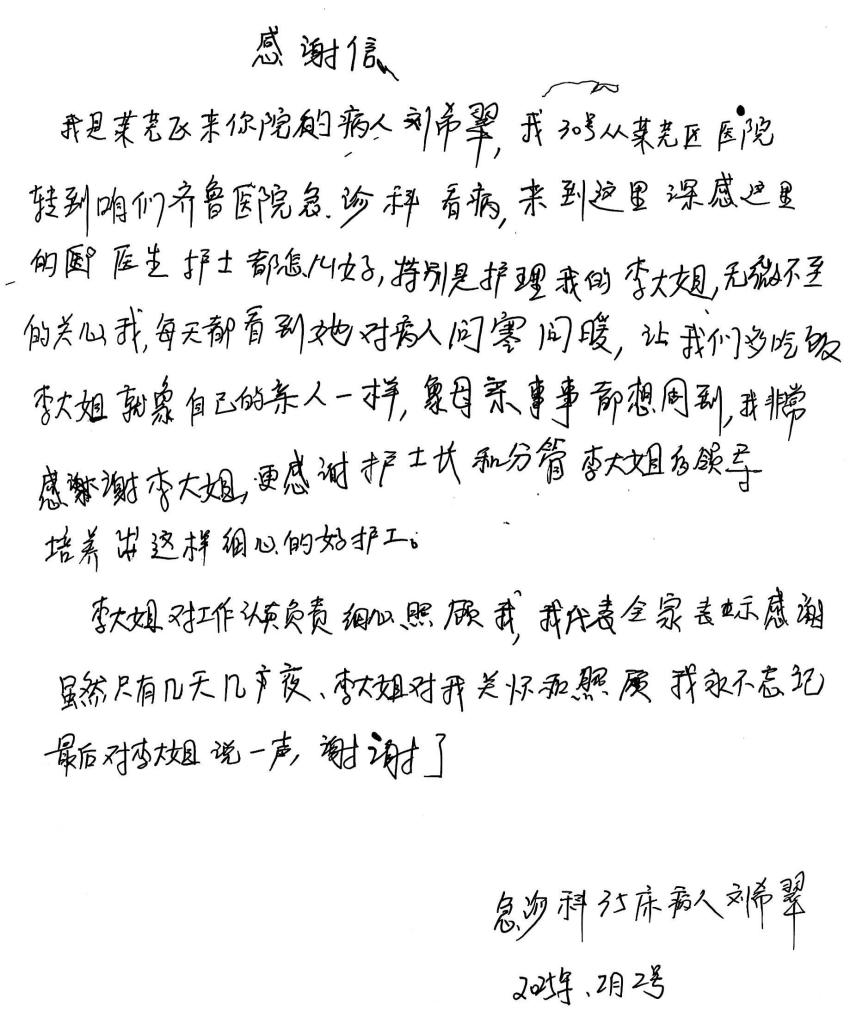 感谢信
我是莱芜区来你院的病人刘希翠，我30号从莱芜区医院
转到咱们齐鲁医院急诊科看病，来到这里深感这里
的医生护士都怎么好，特别是护理我的李大姐，无微不至
的关心我，每天都看到她对病人问寒问暖，让我们多吃饭
李大姐就象自己的亲人一样，象母亲事事都想周到，我非常
感谢谢李大姐，更感谢护士长和分管李大姐的领导
培养出这样细心的好护工。
李大姐对工作认真负责细心照顾我，我代表全家表示感谢
虽然只有几天几夜、李大姐对我关怀和照顾我永不忘记
最后对李大姐说一声，谢谢了
急诊科35床病人刘希翠
2025年、2月2号